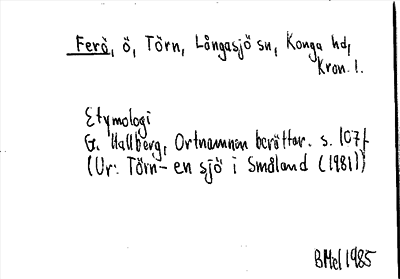 Ferö, ö, Törn, Långasjö sn, Konga hd,
Kron. l.
Etymologi
G. Hallberg, Ortnamnen berättar. s. 107f
(Ur: Törn - en sjö i Småland (1981))
BHel 1985